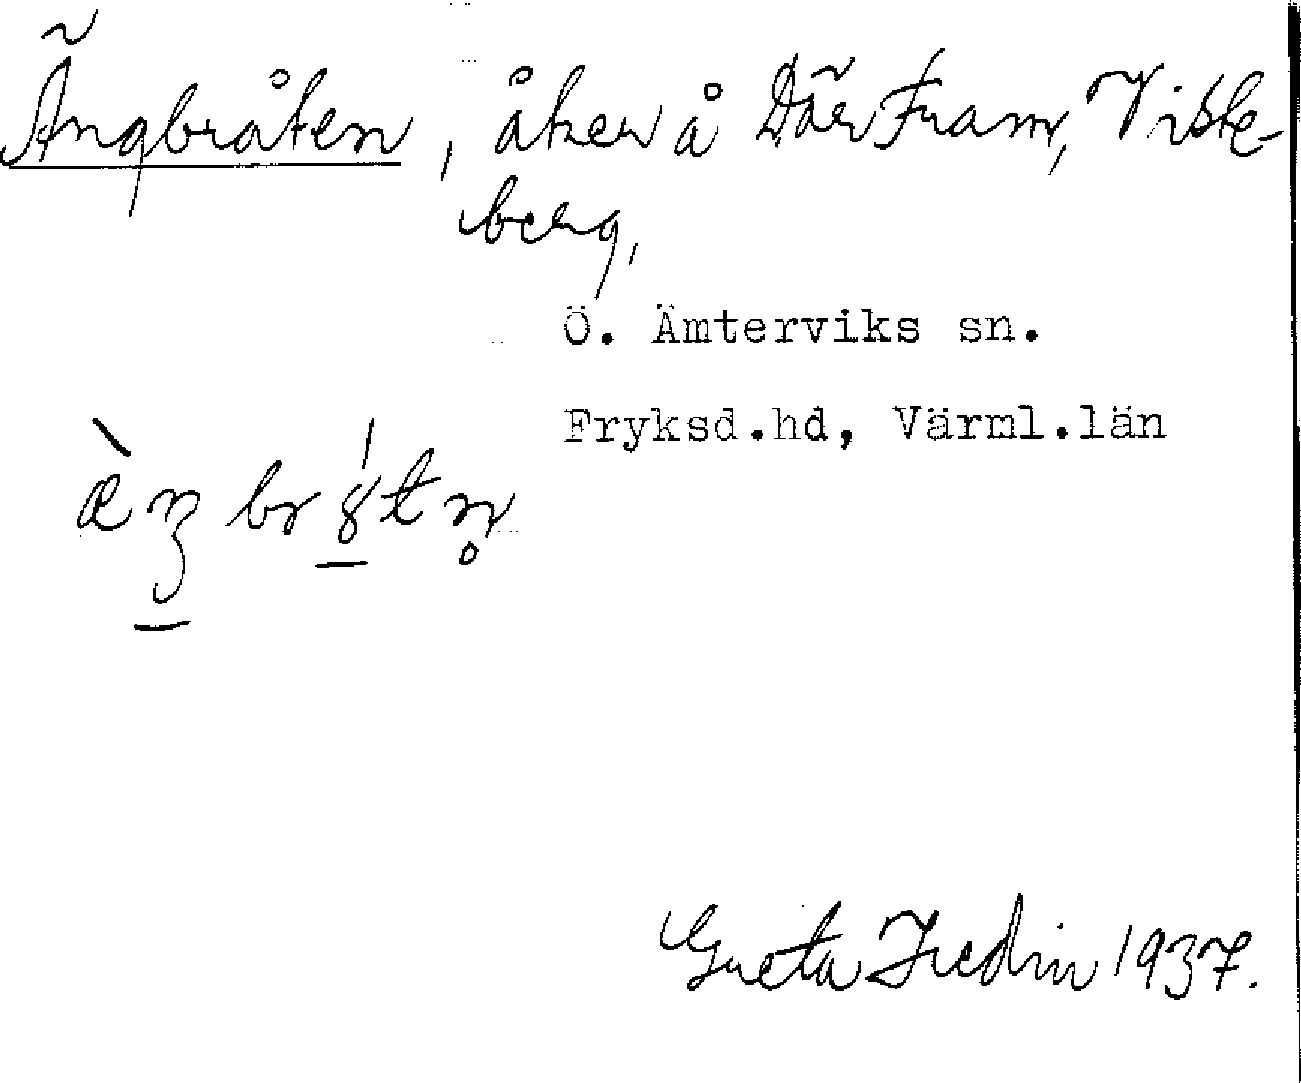 Ängbråten, åker å Där Fram, Viste-
berg,
Ö. Ämterviks sn.
Fryksd.hd, Värml.län
æ̀ŋ br8́tn̥
Greta Fredin 1937.